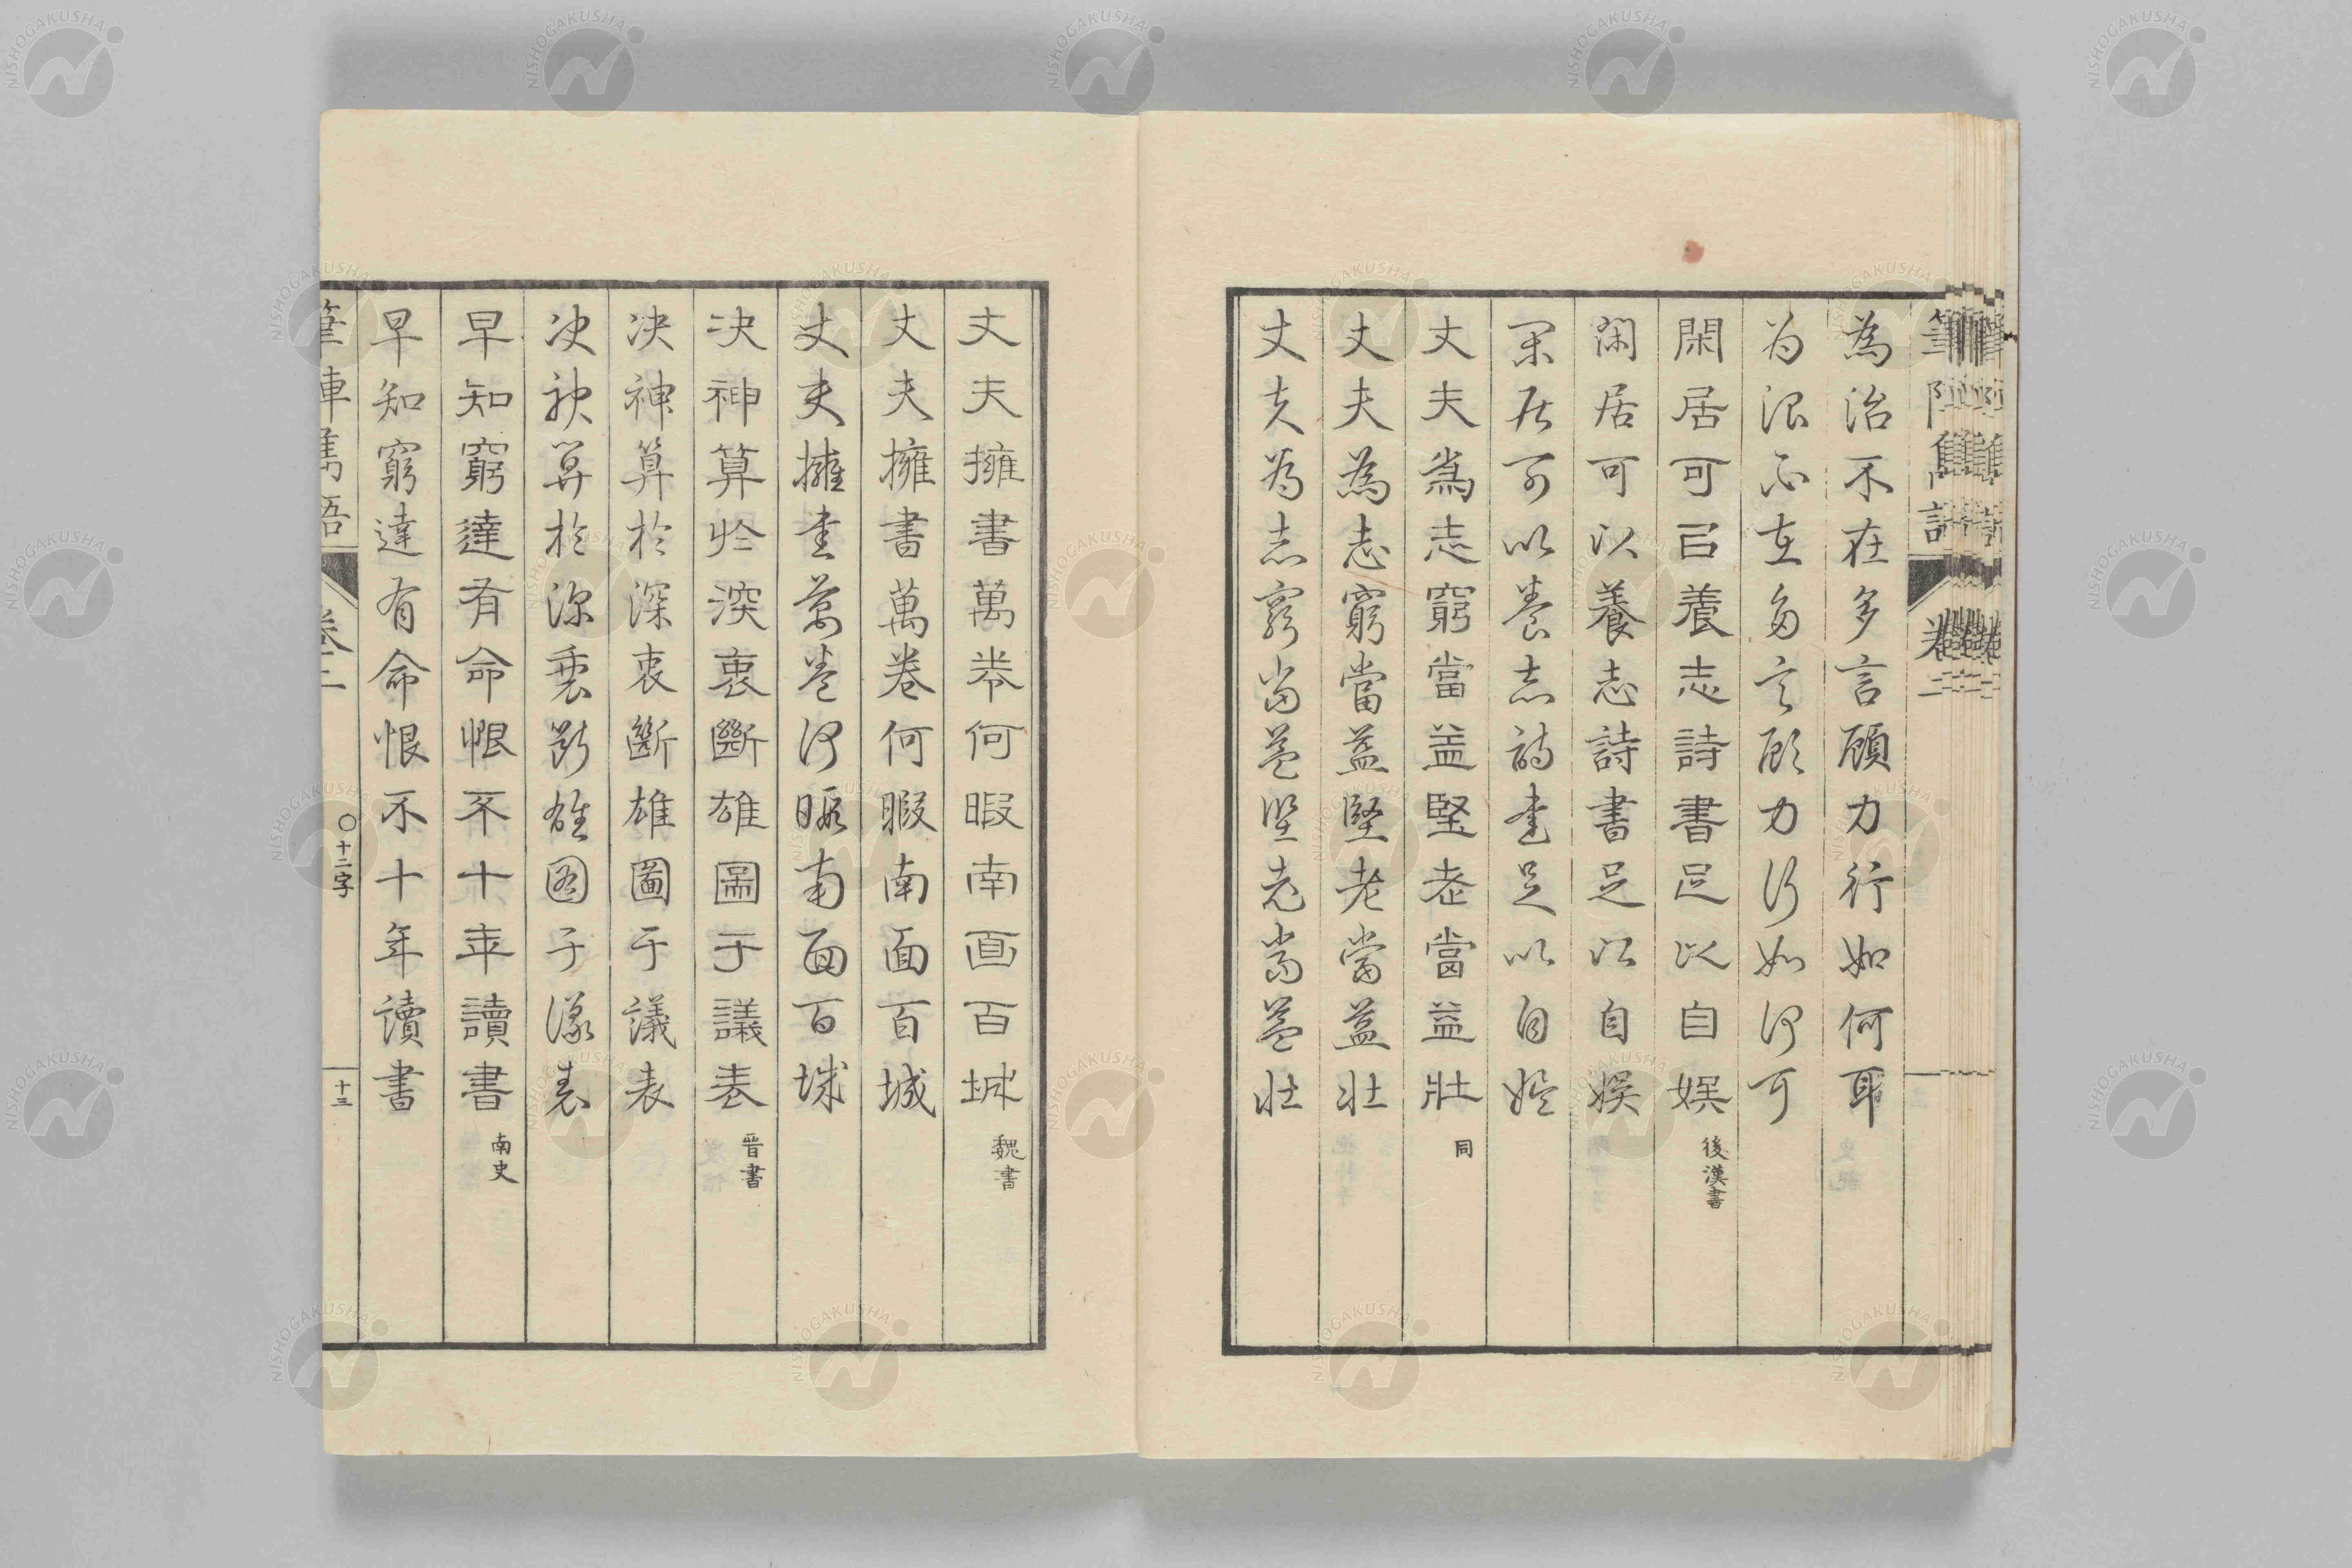 為治不在多言顧力行如何耳
为治不在多言顧力行如何耳
閑居可㠯養志詩書足以自娯 後漢書
閑居可以養志詩書足以自娯
閑居可以養志詩書足以自娯
丈夫為志窮當益堅老當益壯 同
丈夫為志窮當益堅老當益壯
丈夫為志窮當益堅老當益壯
丈夫擁書萬卷何暇南面百城 魏書
丈夫擁書萬卷何暇南面百城
丈夫擁書萬卷何暇南面百城
决神算於深衷斷雄圖于議表 晉書
决神算於深衷斷雄圖于議表
决神算於深衷斷雄圖于議表
早知窮達有命恨不十年讀書 南史
早知窮達有命恨不十年讀書
筆陣雋語 卷二 〇十二字 十三
NISHOGAKUSHA